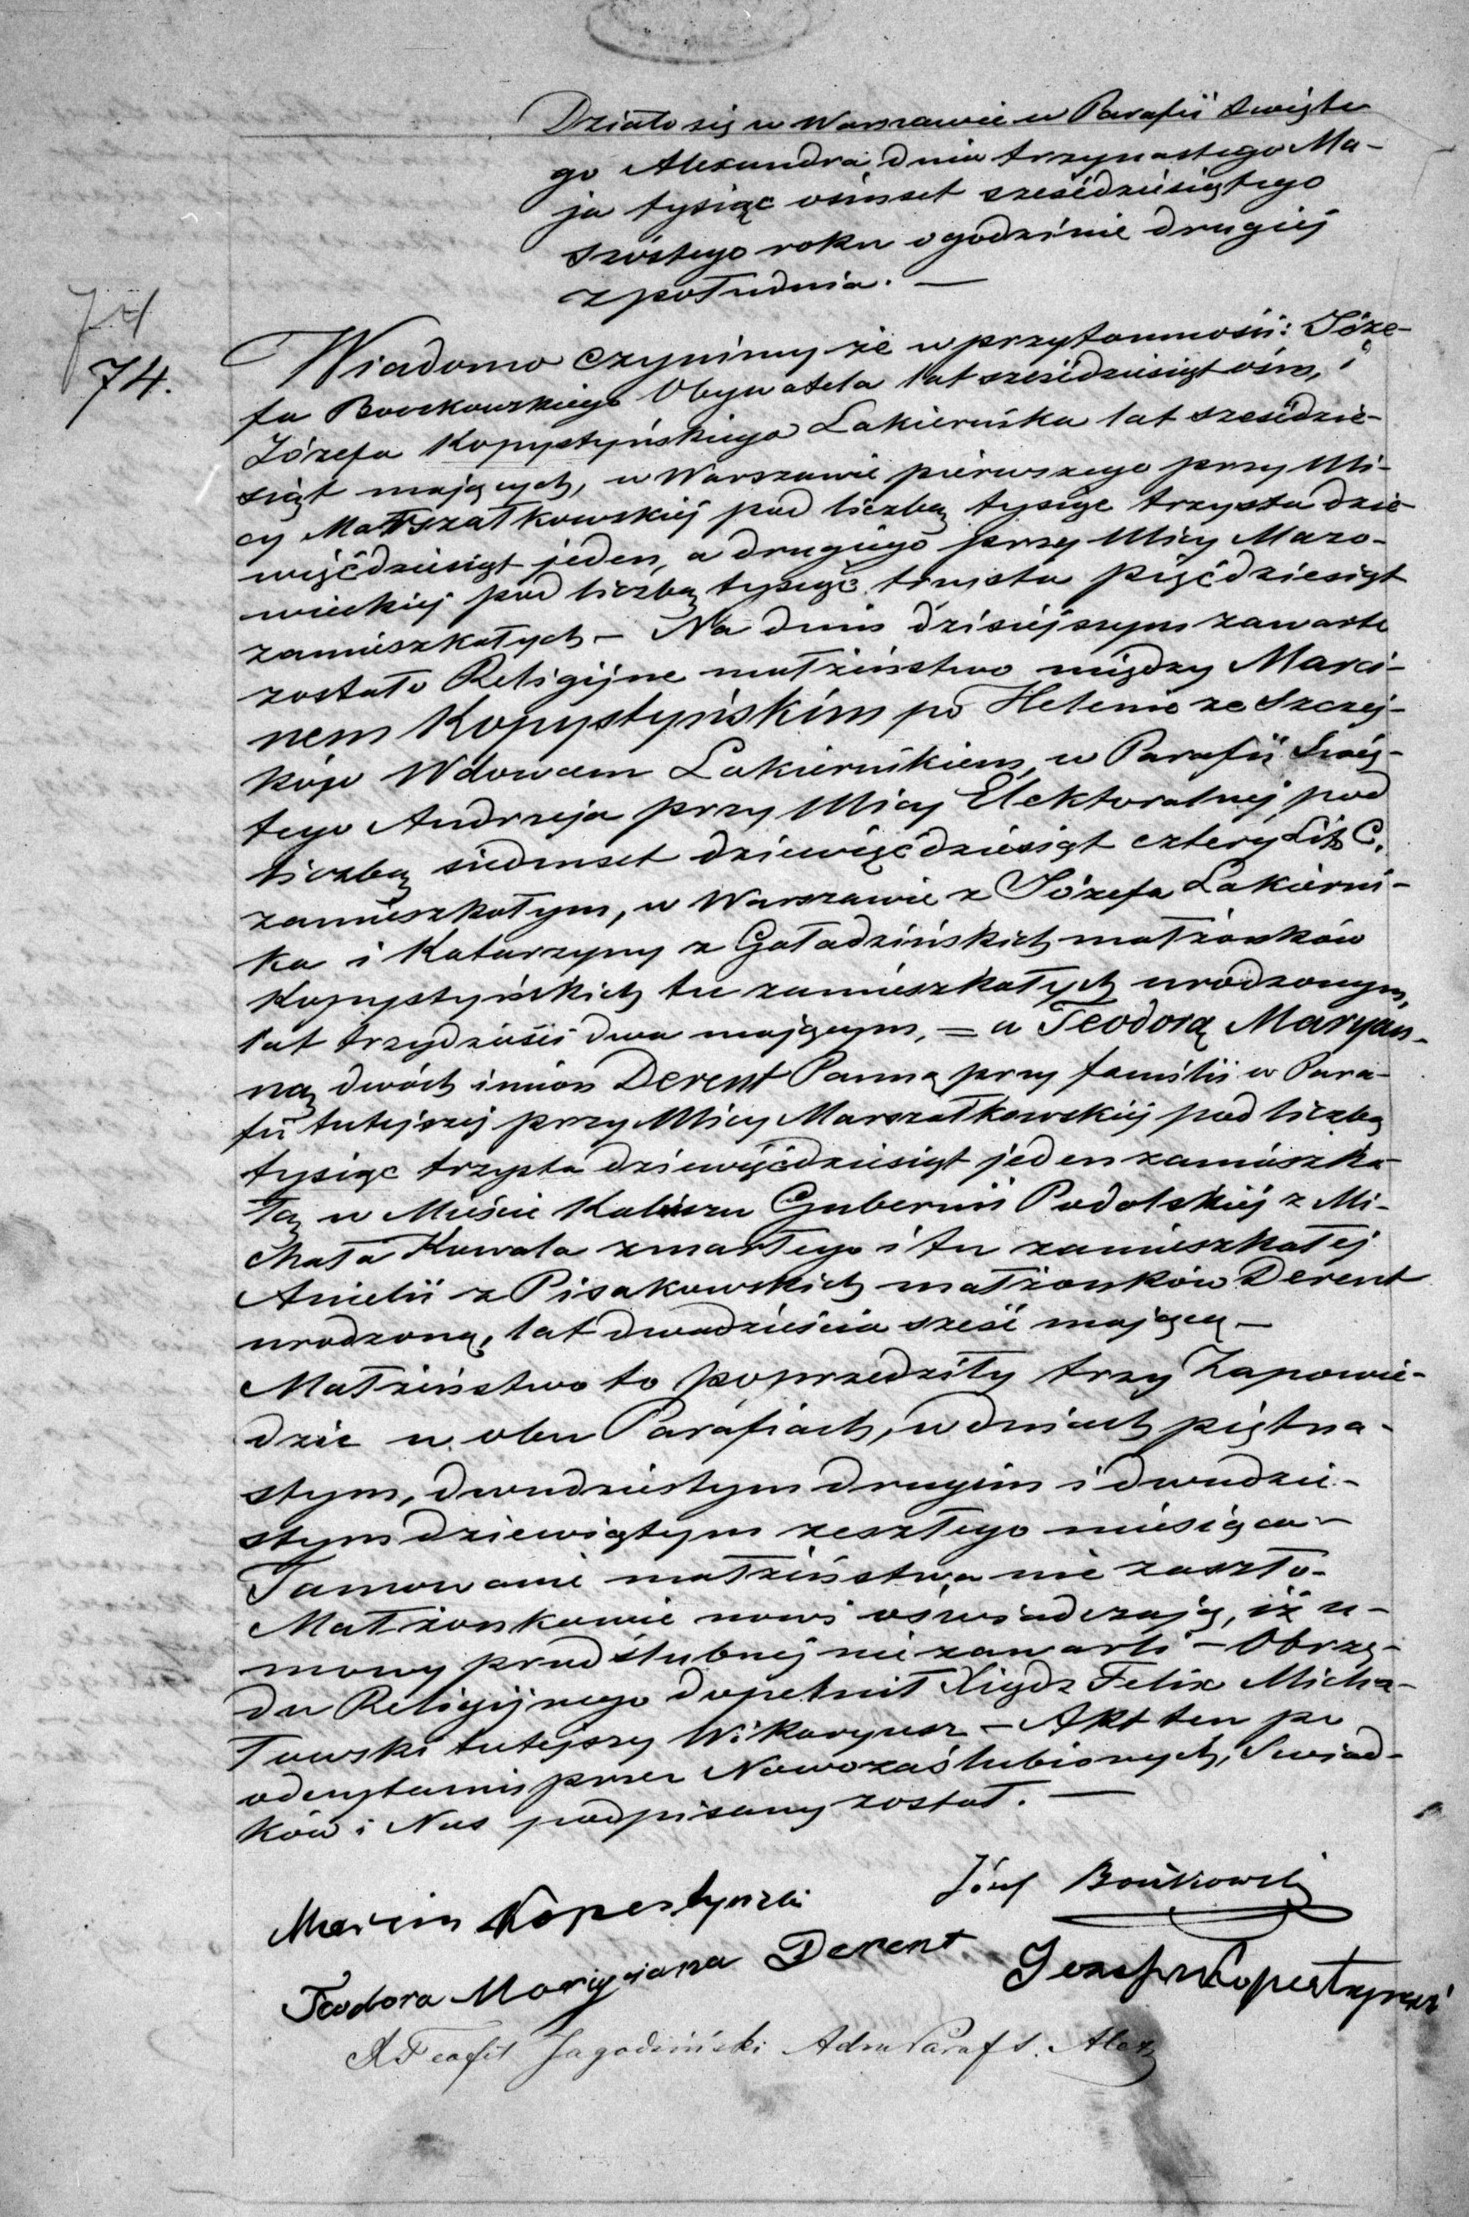 Działo się w Warszawie w Parafii Święte
go Alexandra, dnia trzynastego Ma-
ja tysiąc ośmset sześćdziesiątego
szóstego roku o godzinie drugiej
z południa. —
74
74.
Wiadomo czynimy że w przytomności: Józe-
fa Boczkowskiego Obywatela lat sześćdziesiąt ośm, i
Józefa Kopystyńskiego Lakiernika lat sześćdzie-
siąt mających, w Warszawie pierwszego przy Uli-
cy Marszałkowskiej pod liczbą tysiąc trzysta dzie-
więćdziesiąt jeden, a drugiego przy Ulicy Mazo-
wieckiej pod liczbą tysiąc trzysta pięćdziesiąt
zamieszkałych – Na dniu dzisiejszym zawarte
zostało Religijne małżeństwo między Marci-
nem Kopystyńskim po Helenie ze
Wdowcem Lakiernikiem, w Parafii Święt-
tego Andrzeja przy Ulicy Elektoralnej pod
liczbą siedmset dziewięćdziesiąt cztery Lit. C.
zamieszkałym, w Warszawie z Józefa Lakierni-
ka i Katarzyny z Gaładzińskich małżonków
Kopystyńskich tu zamieszkałych urodzonym,
lat trzydzieści dwa mającym, = a Teodorą Maryan-
ną dwóch imion Derent Panną przy familii w Para-
fii tutejszej przy Ulicy Marszałkowskiej pod liczbą
tysiąc trzysta dziewięćdziesiąt jeden zamieszka-
łą w Mieście Gubernii Podolskiej z Mi-
chała Kowala zmarłego i tu zamieszkałej
Anielii z Pisakowskich małżonków Derent
urodzoną, lat dwadzieścia sześć mającą –
Małżeństwo to poprzedziły trzy Zapowie-
dzie w obu Parafiach, w dniach piętna-
stym, dwudziestym drugim i dwudzie-
stym dziewiątym zeszłego miesiąca –
Tamowanie małżeństwa nie zaszło –
Małżonkowie nowi oświadczają, iż u-
mowy przedślubnej nie zawarli – Obrzę-
du Religijnego dopełnił Xiądz Felix Micha-
łowski tutejszy Wikaryusz – Akt ten po
odczytaniu przez Nowozaślubionych, Świad-
ków i Nas podpisany został. —
Józef Boczkowski
Marcin Kopestynski
Teodora Maryjanna Derent
Jozef Kopestynski
X Teofil Jagodziński Adm Paraf S. Alex